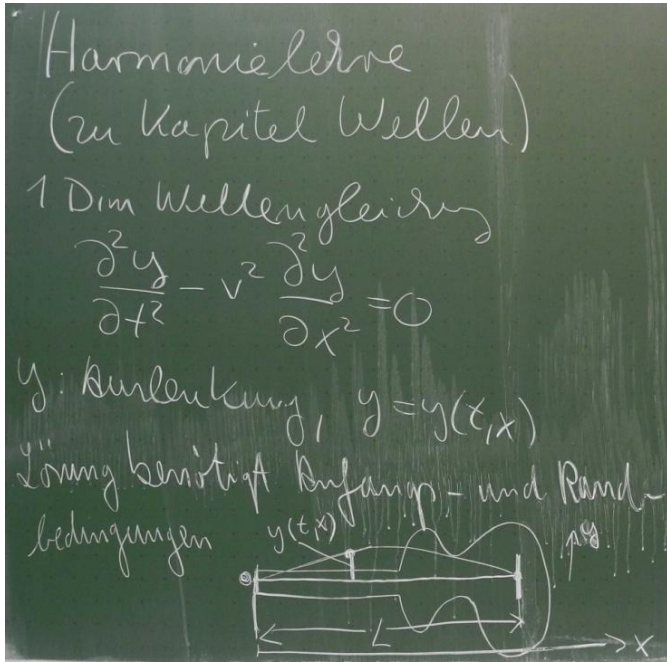 Harmonielehre
(zu Kapitel Wellen)
1 Dim Wellengleichung
∂²y/∂t² - v² ∂²y/∂x² = 0
y: Auslenkung, y = y(t,x)
Lösung benötigt Anfangs- und Rand-
bedingungen
y(t,x)
y
L
x